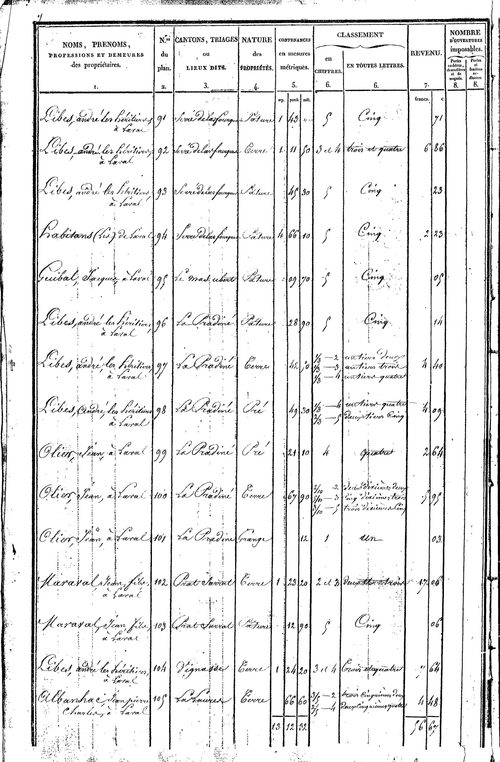 NOMS, PRENOMS,
PROFESSIONS ET DEMEURES
des propriétaires.
N.os
du
plan.
2.
CANTONS, TRIAGES
ou
LIEUX DITS.
3.
NATURE
des
PROPRIÉTÉS.
4.
CONTENANCES
en mesures
métriques.
5.
CLASSEMENT
en
CHIFFRES.
6.
EN TOUTES LETTRES.
6.
REVENU.
7.
NOMBRE
D'OUVERTURES
imposables.
8.
8.
francs. c
Libes, andré les héritiers, à Laval 91 Pature 1 43 5 Cinq 71
Libes, andré les héritiers, à Laval 92 Terre 1 11 50 3 et 4 trois et quatre 6 86
Libes, andré les héritiers à Laval 93 Pature 45 30 5 Cinq 23
Habitans (les) de Laval 94 Pature 4 66 10 5 Cinq 2 23
Guibal, Jacques, à Laval 95 Le mas Pature 09 70 5 Cinq 05
Libes, andré les héritiers, à Laval 96 La Pradine Pature 28 90 5 Cinq 14
Libes, andré les héritiers, à Laval 97 La Pradiné Terre 1/3 — 2 un tiers deux
1/3 — 3 un tiers trois 4 40
1/3 — 4 un tiers quatre
Libes, andré les héritiers à Laval 98 La Pradiné Pré 49 30 1/3 — 4 un tiers quatre
2/3 — 5 deux tiers Cinq 4 09
Olier, Jean, à Laval 99 La Pradiné Pré 21 10 4 quatre 2 64
Olier, Jean, à Laval 100 La Pradiné Terre 67 90 2/10 — 2 deux dixièmes deux
5/10 — 3 cinq dixièmes trois 7 95
3/10 — 5 trois dixièmes Cinq
Olier, Jean, à Laval 101 La Pradine Grange 12 1 un 03
Maraval, Jean fils, à Laval 102 Prat Terre 1 23 20 2 et 3 deux et trois 17 06
Maraval, Jean fils, à Laval 103 Prat Pature 12 90 5 Cinq 06
Libes, andré les héritiers, à Laval 104 Terre 1 24 20 3 et 4 trois et quatre 7 64
Charles, à Laval 105 Terre 66 60 3/5 — 2 trois cinquièmes deux
2/5 — 4 deux cinquièmes quatre 4 48
13 12 32 56 67